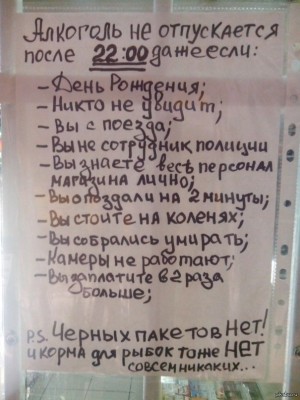 Алкоголь не отпускается
после 22:00 даже если:
- День Рождения;
- Никто не увидит;
- Вы с поезда;
- Вы не сотрудник полиции
- Вы знаете весь персонал
магазина лично;
- Вы опоздали на 2 минуты;
- Вы стоите на коленях;
- Вы собрались умирать;
- Камеры не работают;
- Вы заплатите в 2 раза
больше;
P.S. Черных пакетов Нет!
и корма для рыбок тоже НЕТ
совсем никаких...